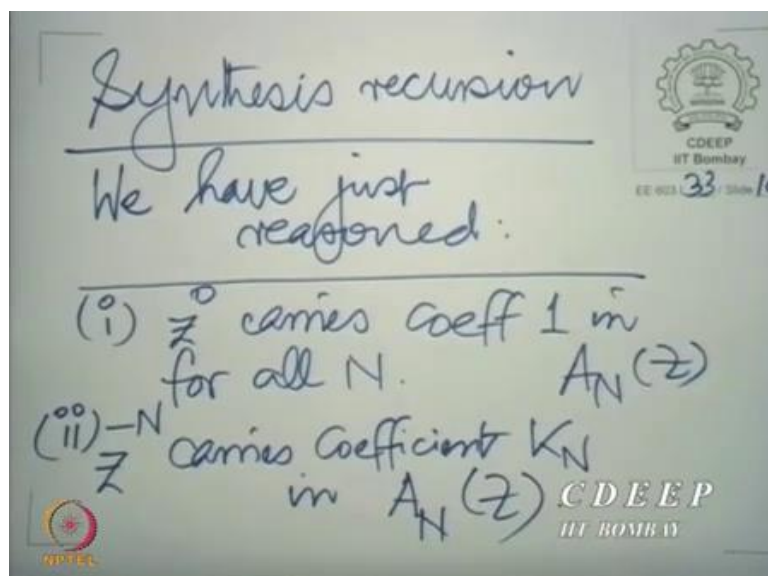 Synthesis recursion
CDEEP
IIT Bombay
EE 603 L 33 / Slide 1
We have just
reasoned:
(i) z⁰ carries coeff 1 in
for all N. A_N(z)
(ii) z^-N carries coefficient K_N
in A_N(z)
CDEEP
IIT BOMBAY
NPTEL